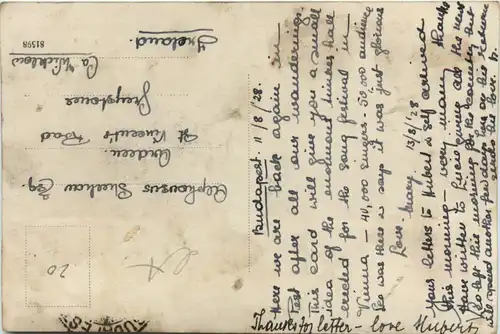 Budapest. 11/8/28.
Here we are back again in
Pest after all our wanderings.
This card will give you a small
idea of the enormous timber hall
erected for the song festival in
Vienna - 40,000 singers - 50,000 audience
Leo was there & says it was just glorious
Love. Mary. 13/8/28
Yours letters to Hubert & self arrived
this morning - very many thanks
Have written to Lucie giving all the news
Leo left this morning for the country but
will spend another few days here
sends his love.
Thanks for letter - love Hubert.
Alphonsus Sheehan Esq.
Ardeen
St Vincent's Road
Greystones
Co. Wicklow
Ireland.
81598
20